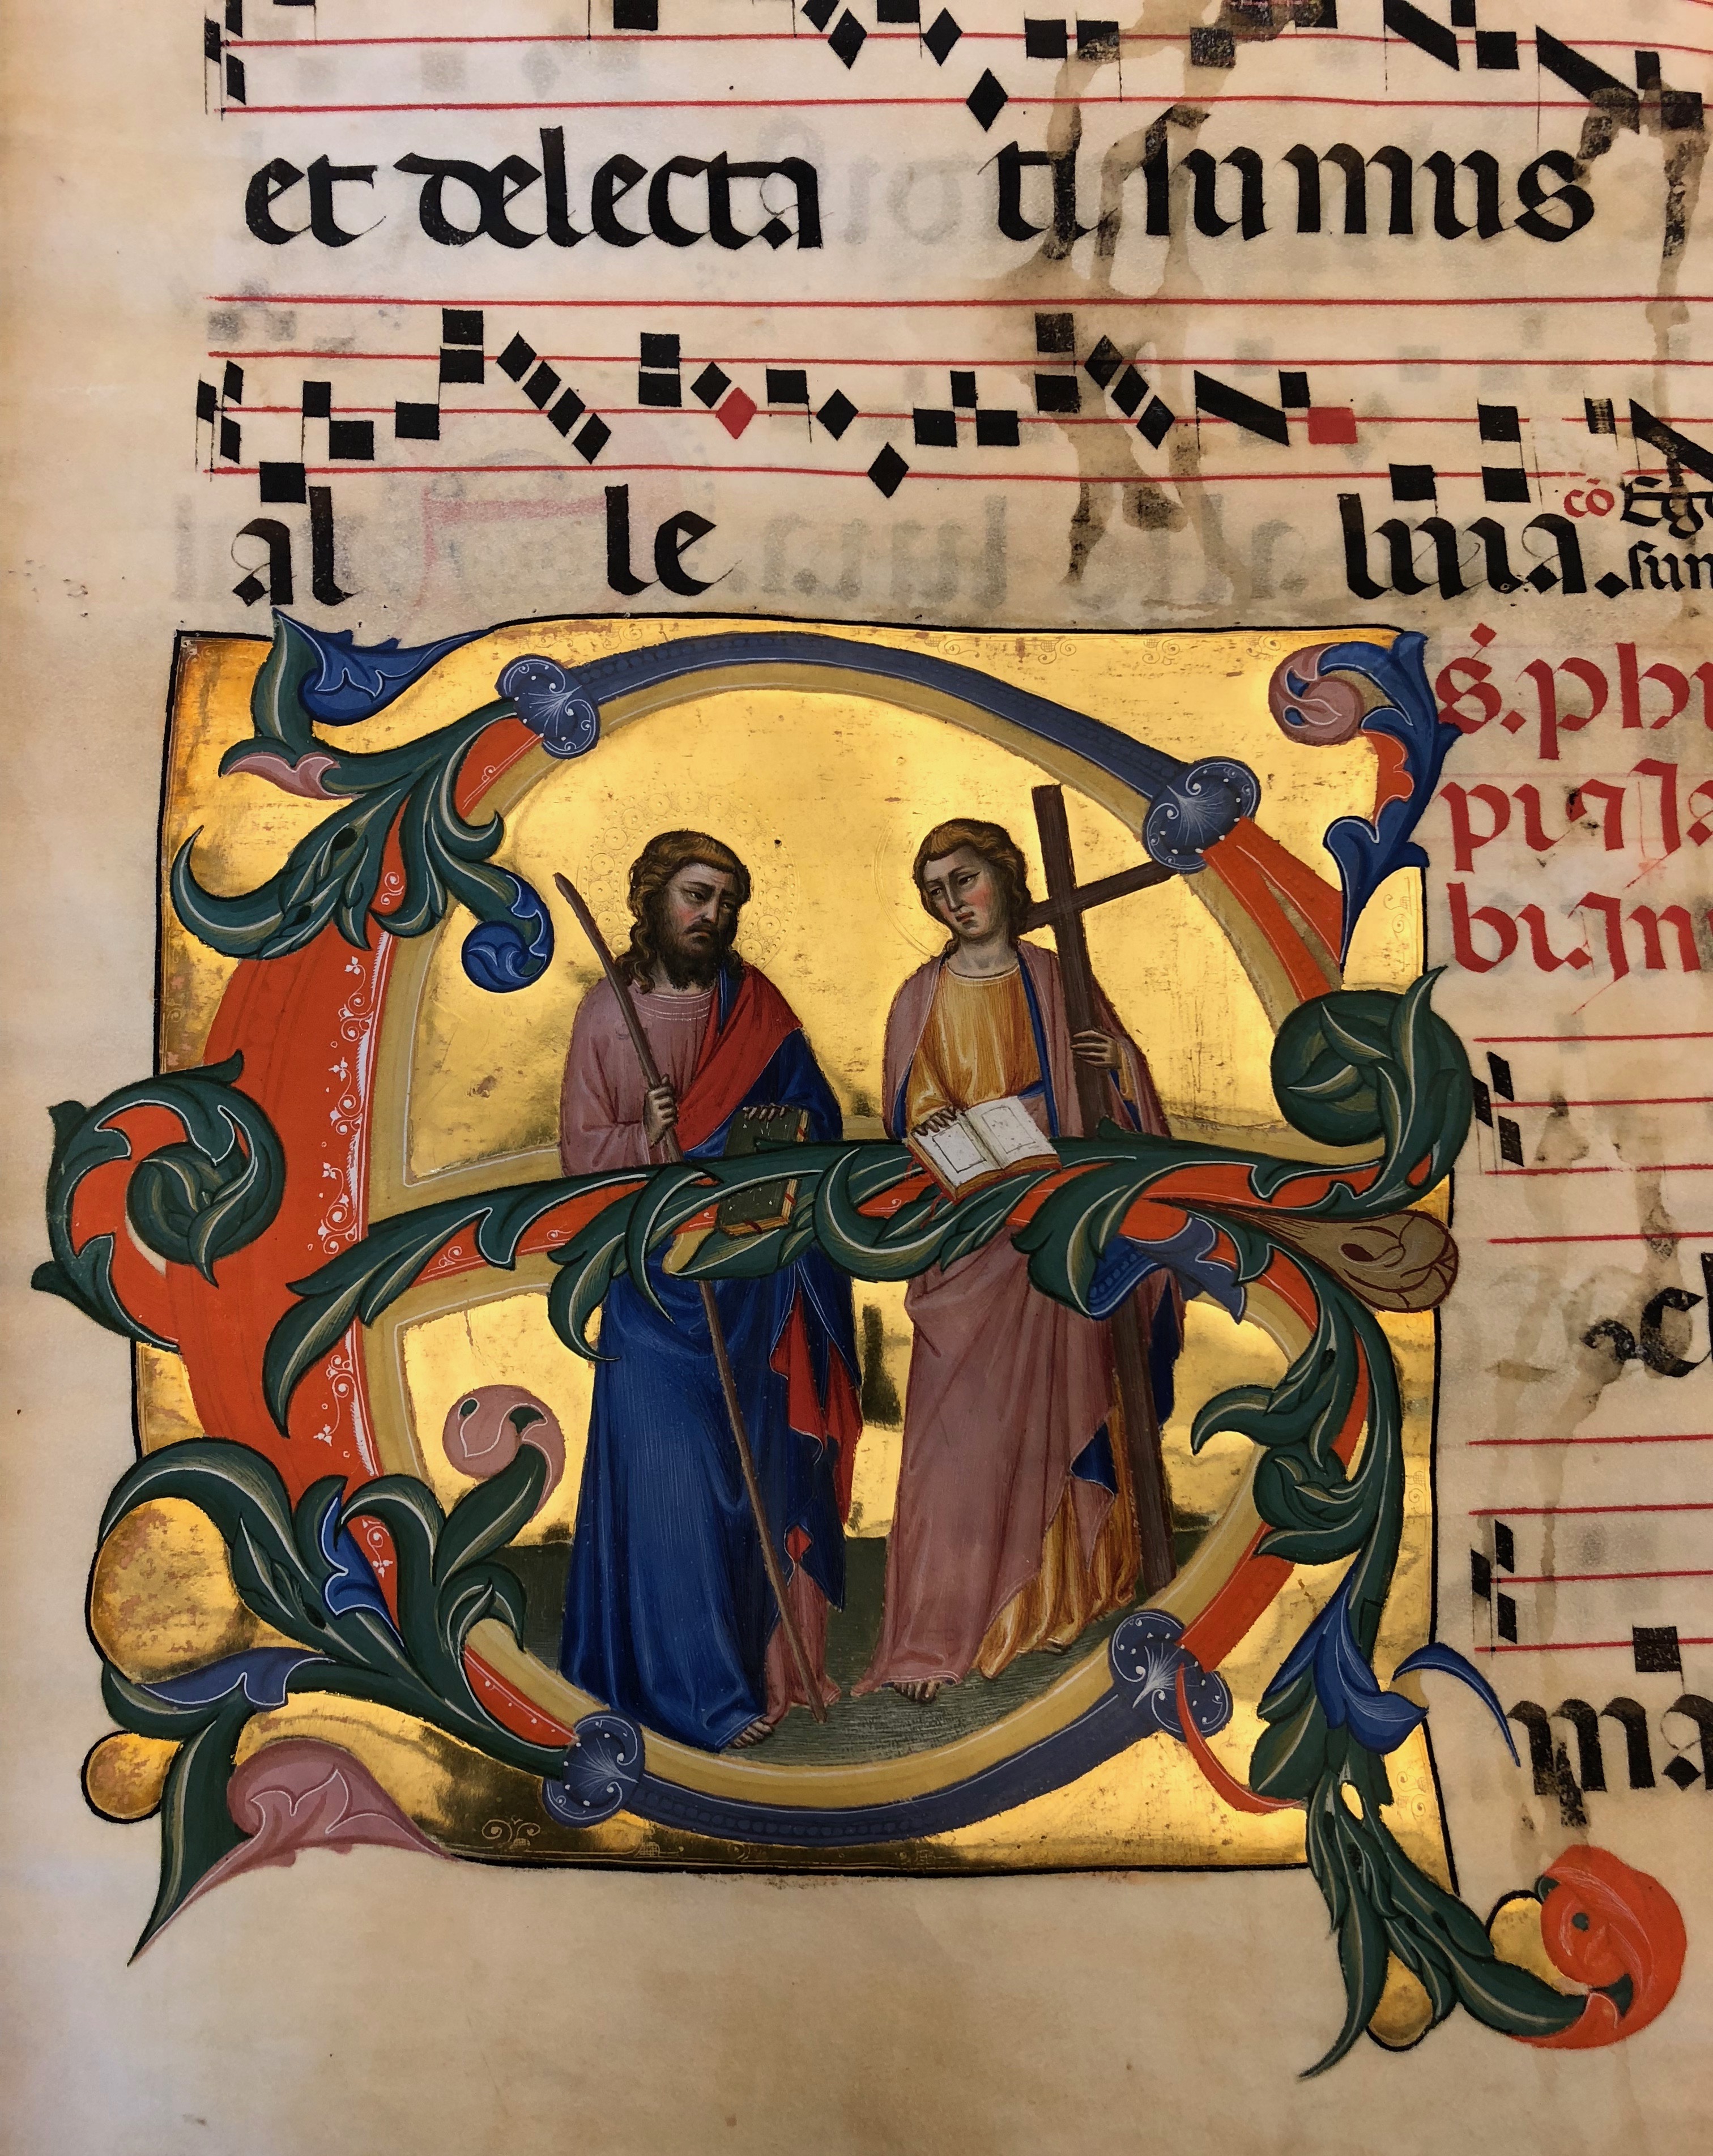 et delecta ti sumus
al le luia. cō Ego
sum
E
s. phi
pi ⁊ Ja
bi. Jn
ma